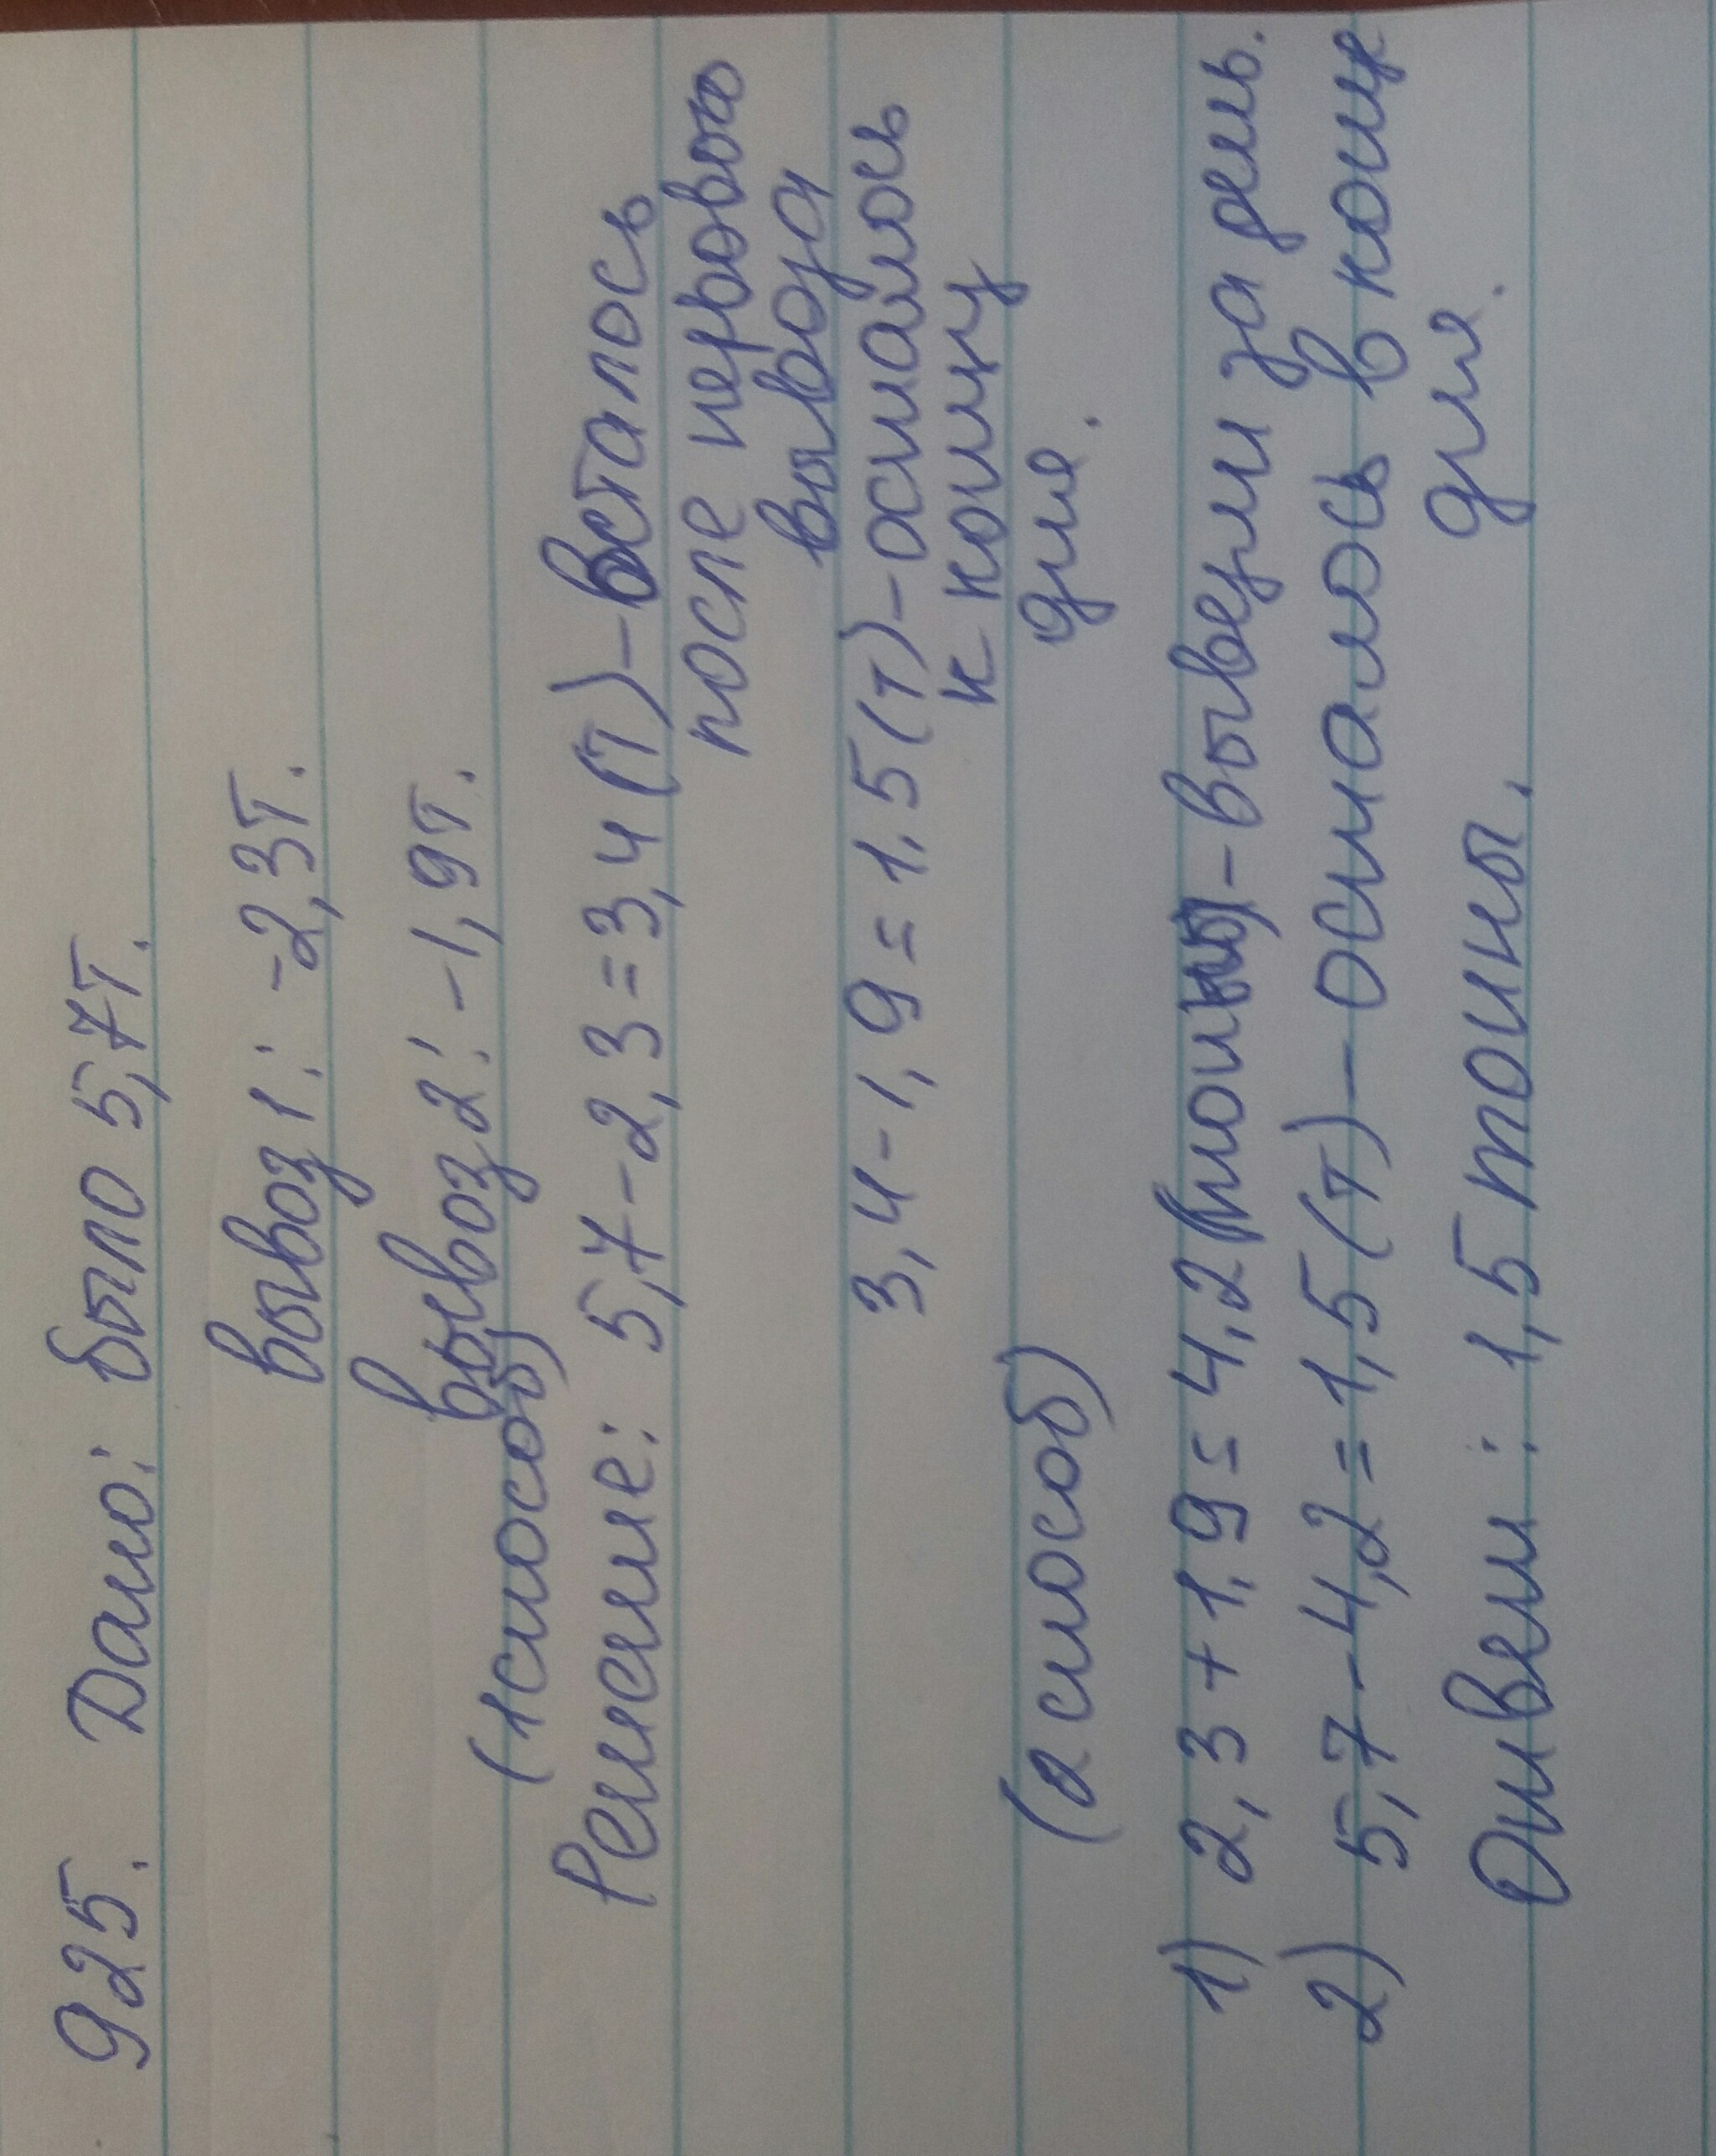 925. Дано: было 5,7т.
вывоз 1: -2,3т.
вывоз 2: -1,9т.
(1 способ)
Решение: 5,7-2,3=3,4(т)-осталось
после первого
вывоза
3,4-1,9=1,5(т)-осталось
к концу
дня.
(2 способ)
1) 2,3+1,9=4,2(тонны)-вывезли за день.
2) 5,7-4,2=1,5(т)-осталось в конце
дня.
Ответ: 1,5 тонны.